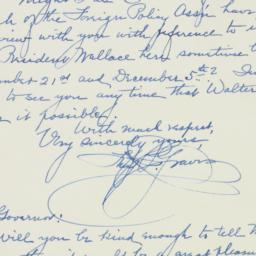 of the Foreign Policy Ass'n have
view with you with reference to
President Wallace here sometime b
mber 21st and December 5th? I
to see you any time that Walter
it possible.
With much respect,
Very sincerely yours,
Governor:
will you be kind enough to tell
a great pleasure